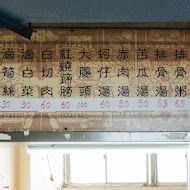 排骨粥 65
排骨湯 55
苦瓜湯 50
赤肉湯 50
蚵仔湯 60
大腸頭 100
紅燒蹄膀 60
白切肉 60
滷白菜 30
滷筍絲 30